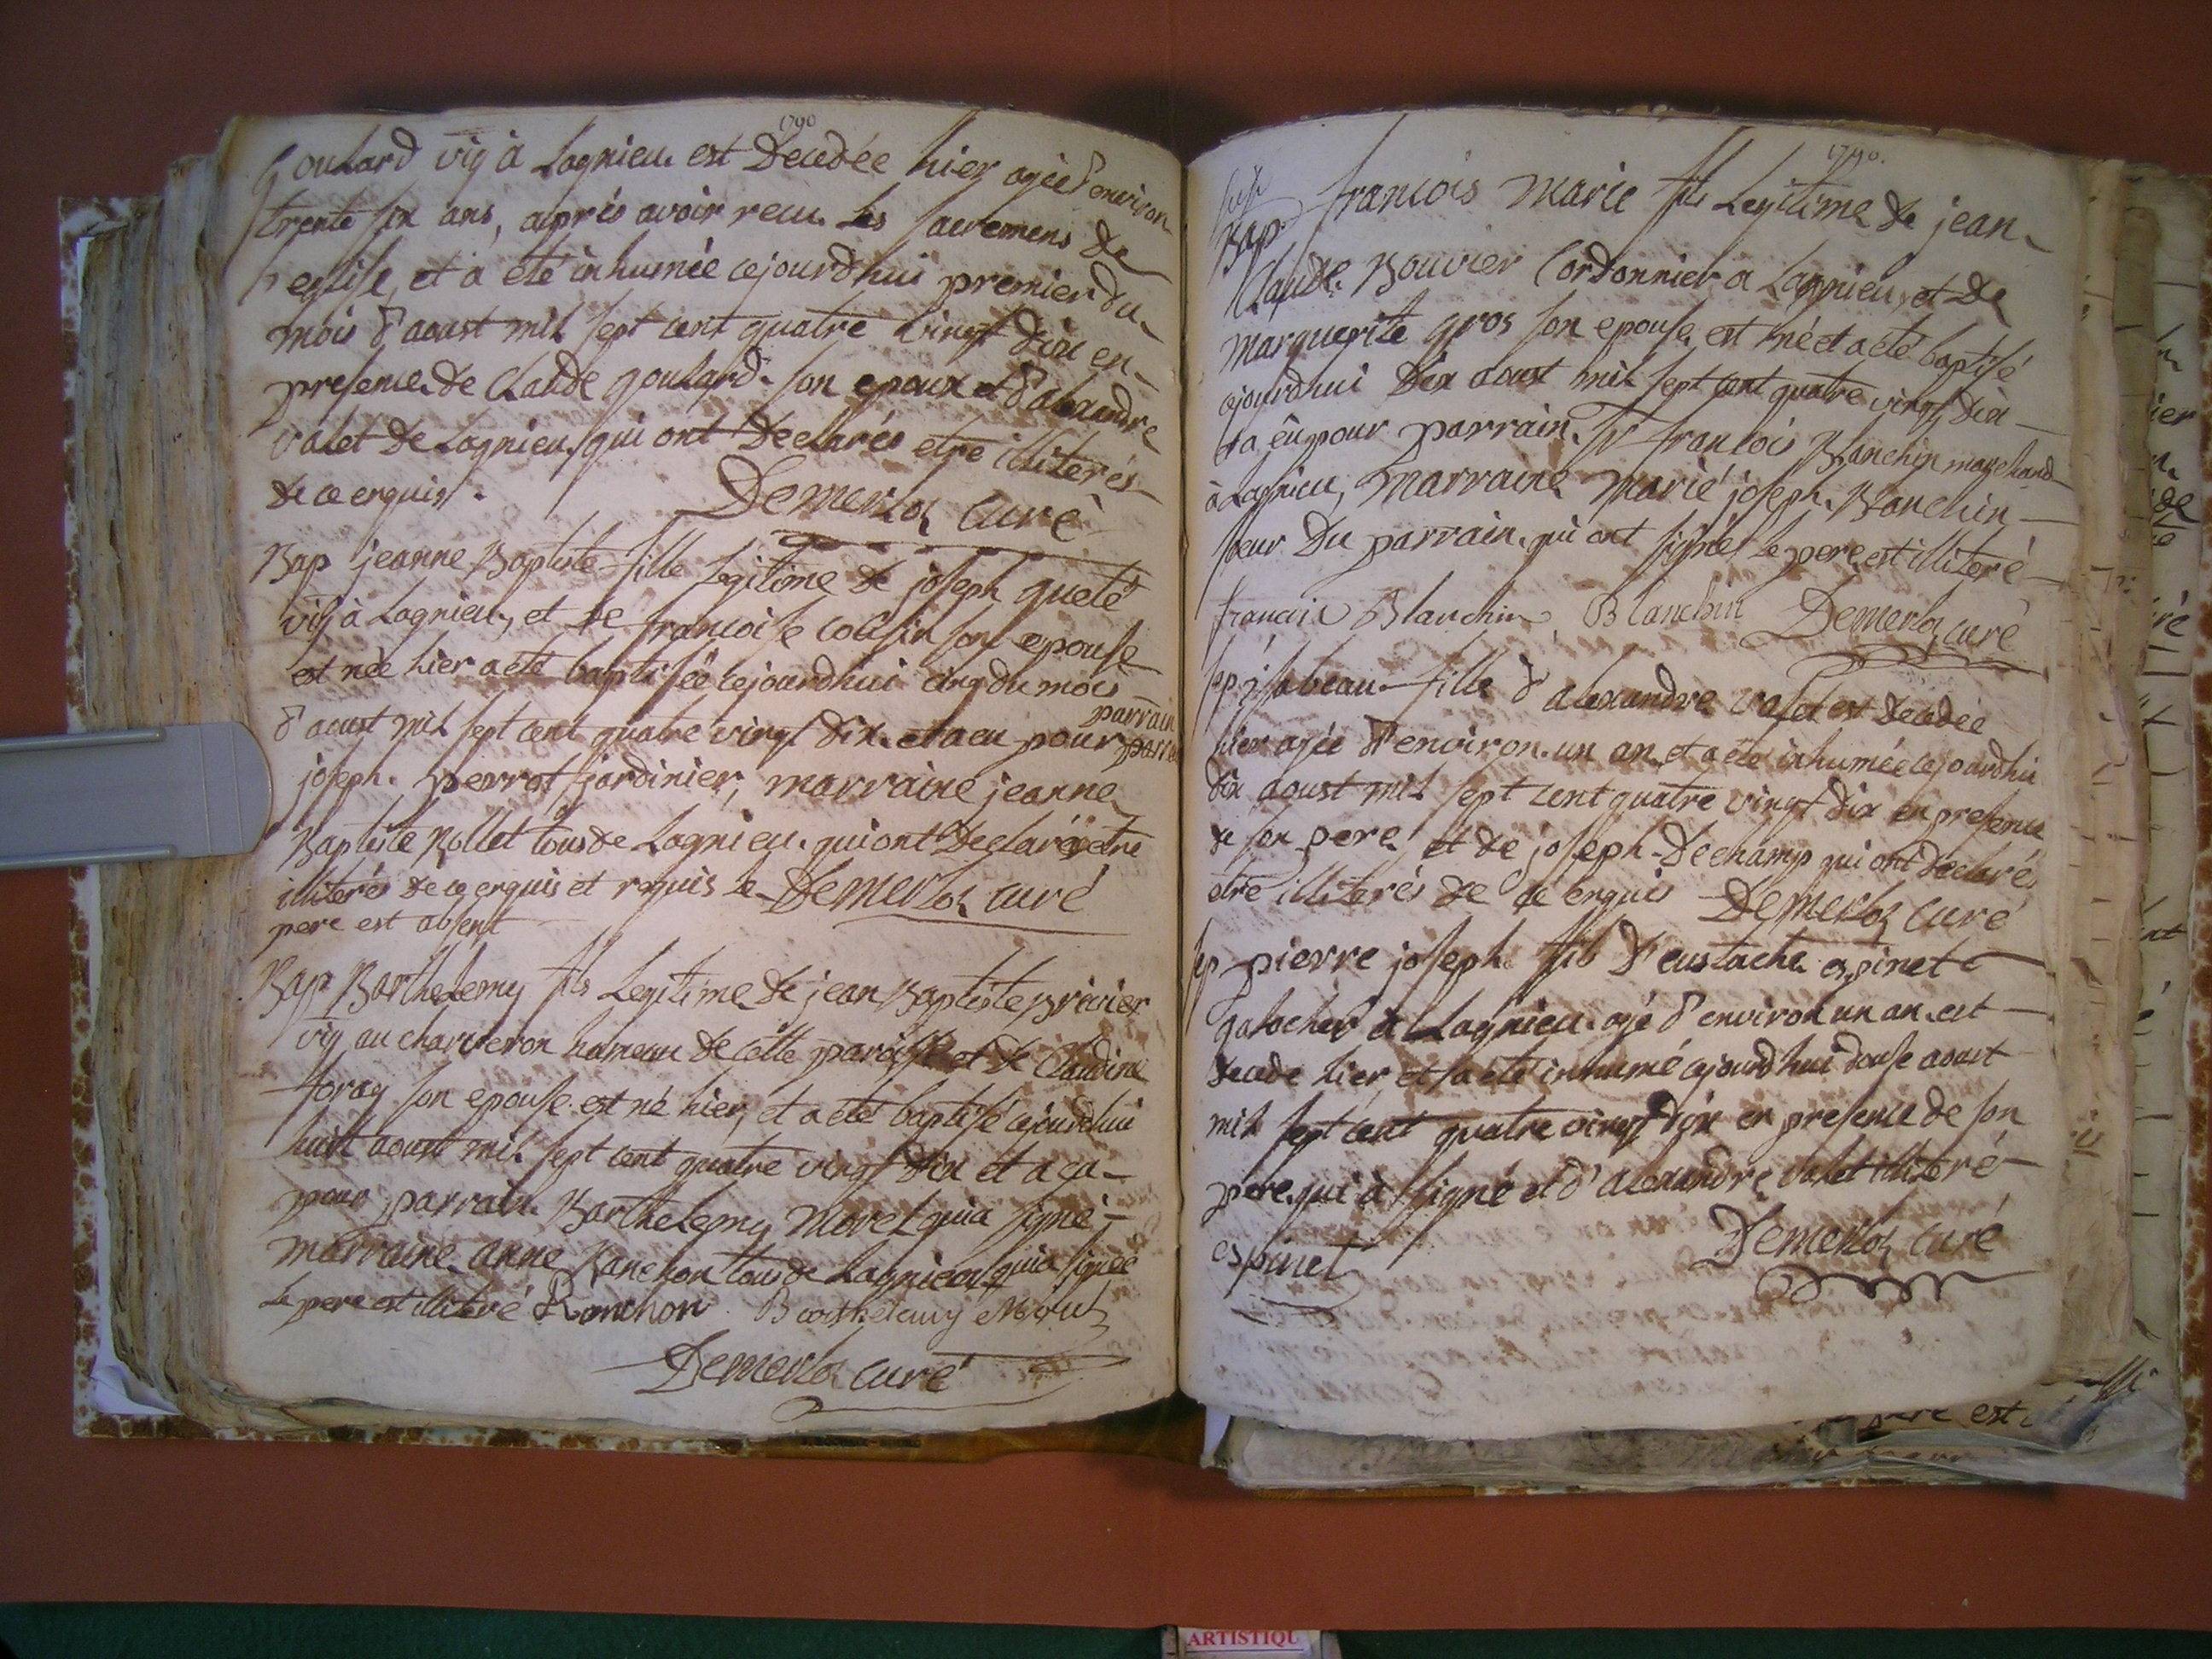 1790
goulard vig à Lagnieu est Decedée hier agée d'environ
trente six ans, après avoir recu les sacremens de
l'eglise, et a été inhumée cejourd'hui premier du
mois d'aoust mil sept cent quatre vingt dix en
presence de Claude goulard son epoux et d'alexandre
valet de Lagnieu qui ont declarés etre illiterés
de ce enquis.
Demerloz curé
Bap jeanne Baptiste fille legitime de joseph gueté
vig à Lagnieu, et de francoise cousin son epouse
est née hier a été baptisée cejourdhui cinq du mois
d'aoust mil sept cent quatre vingt dix et a eu pour parrain
joseph perrot jardinier, marraine jeanne
Baptiste nollet tous de Lagnieu qui ont declarés etre
illiterés de ce enquis et requis le Demerloz curé
pere est absent
Bap Barthelemy fils Legitime de jean Baptiste
vig au charveron hameau de cette paroisse et de Claudine
foray son epouse est né hier, et a été baptisé cejourdhui
huit aoust mil sept cent quatre vingt dix et a eu
pour parrain Barthelemy Morel qui a signé
marraine anne Ranchon tous de Lagnieu qui a signée
le pere est illiteré Ranchon Barthelemy Morel
Demerloz curé
1790.
Bap francois Marie fils Legitime de jean
Claude Bouvier Cordonnier a Lagnieu, et de
marguerite gros son epouse est né et a été baptisé
cejourdhui dix aoust mil sept cent quatre vingt dix
et a eu pour parrain Sr francois Blanchin marchand
à Lagnieu, marraine marie joseph Blanchin
soeur du parrain qui ont signés le pere est illiteré
francois Blanchin Blanchin Demerloz curé
sep isabeau fille d'alexandre valet est decedée
hier agée d'environ un an et a été inhumée cejourdhui
dix aoust mil sept cent quatre vingt dix en presence
de son pere et de joseph Dechamp qui ont declarés
etre illiterés de ce enquis Demerloz curé
sep pierre joseph fils d'eustache espinet
galocher à Lagnieu agé d'environ un an est
decede hier et a été inhumé cejourd'hui douse aoust
mil sept cent quatre vingt dix en presence de son
pere qui à signé et d'alexandre valet illiteré
Demerloz curé
espinet
ARTISTIQU